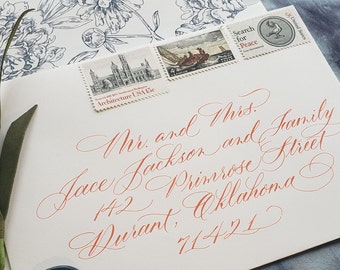 Architecture USA 15c
Search for
Peace
Mr. and Mrs.
Jace Jackson and Family
142 Primrose Street
Durant, Oklahoma
71421